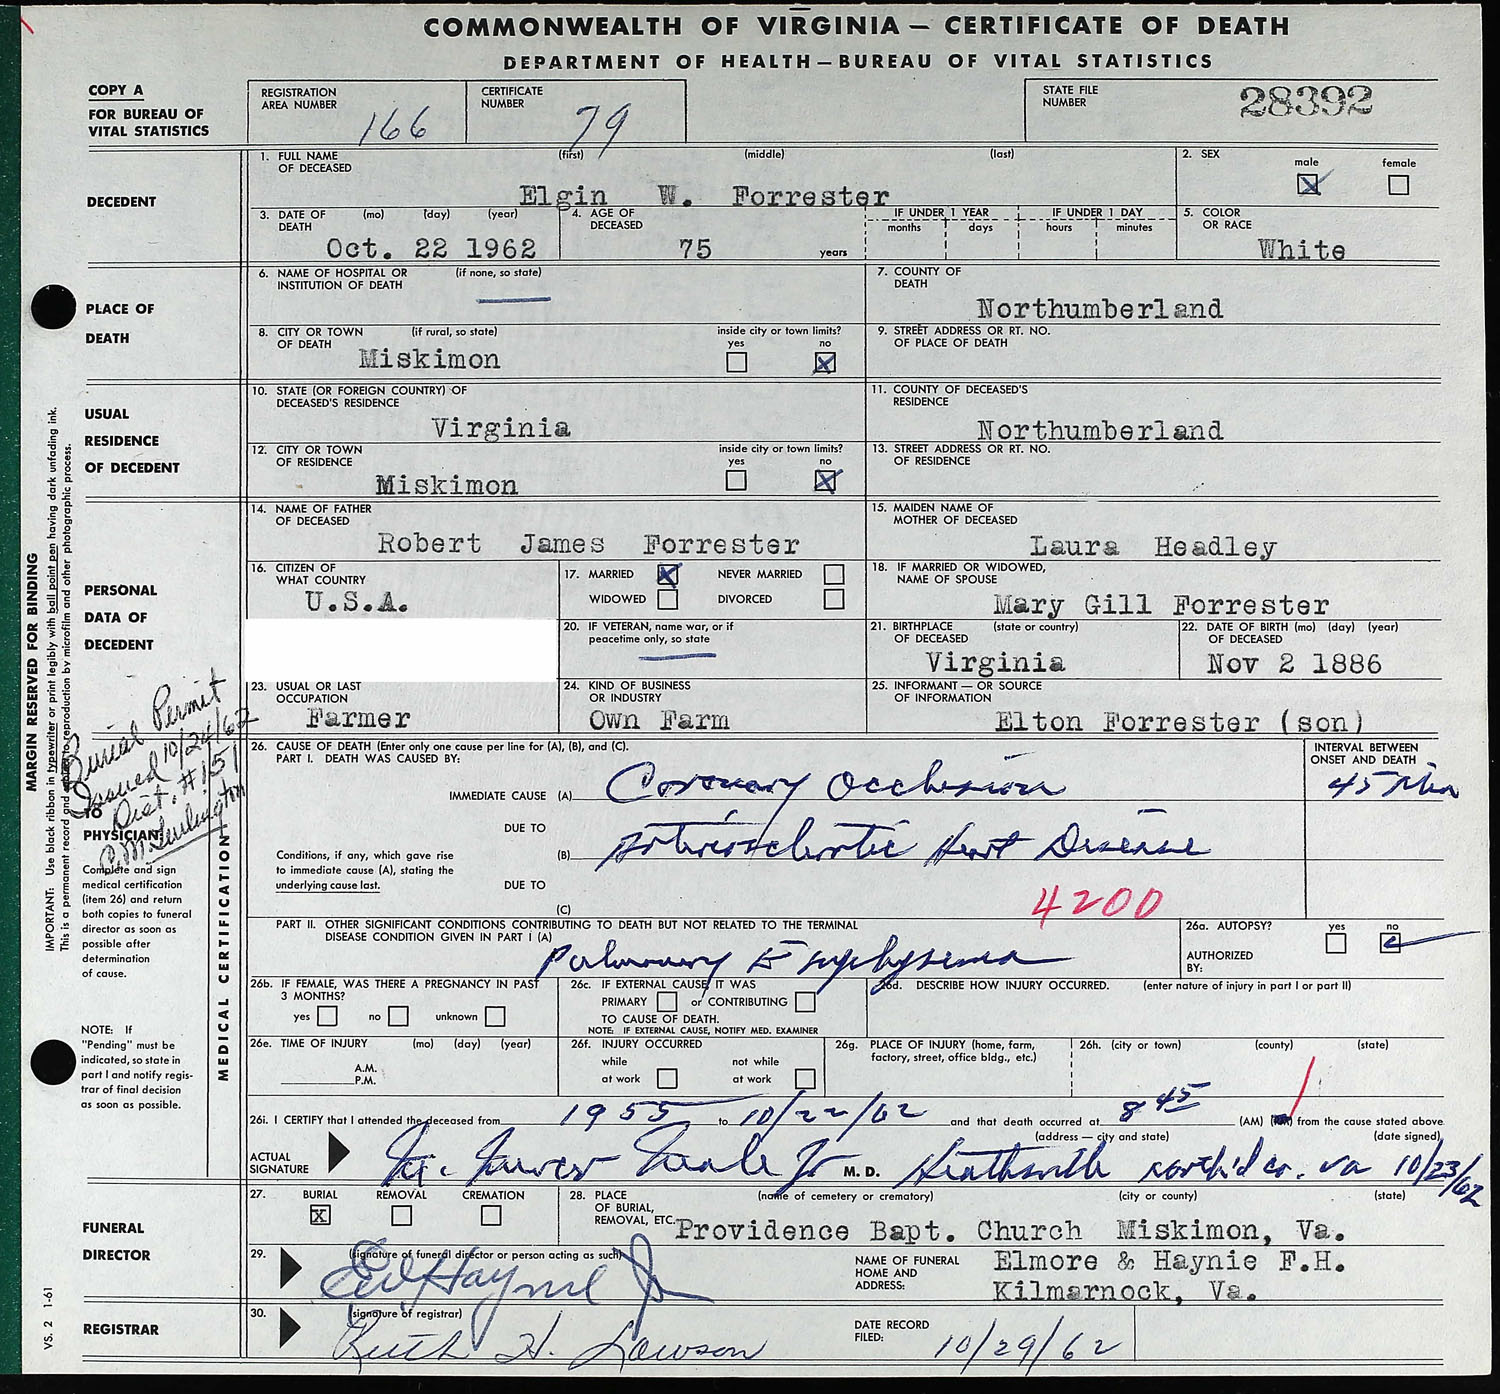 COMMONWEALTH OF VIRGINIA — CERTIFICATE OF DEATH
DEPARTMENT OF HEALTH — BUREAU OF VITAL STATISTICS
COPY A
FOR BUREAU OF
VITAL STATISTICS
REGISTRATION
AREA NUMBER
166
CERTIFICATE
NUMBER
79
STATE FILE
NUMBER
28392
DECEDENT
1. FULL NAME
OF DECEASED
(first) (middle) (last)
Elgin W. Forrester
2. SEX
male female
3. DATE OF
DEATH
(mo) (day) (year)
Oct. 22 1962
4. AGE OF
DECEASED
75 years
IF UNDER 1 YEAR
months days
IF UNDER 1 DAY
hours minutes
5. COLOR
OR RACE
White
PLACE OF
DEATH
6. NAME OF HOSPITAL OR
INSTITUTION OF DEATH
(if none, so state)
7. COUNTY OF
DEATH
Northumberland
8. CITY OR TOWN
OF DEATH
(if rural, so state)
Miskimon
inside city or town limits?
yes no
9. STREET ADDRESS OR RT. NO.
OF PLACE OF DEATH
USUAL
RESIDENCE
OF DECEDENT
10. STATE (OR FOREIGN COUNTRY) OF
DECEASED'S RESIDENCE
Virginia
11. COUNTY OF DECEASED'S
RESIDENCE
Northumberland
12. CITY OR TOWN
OF RESIDENCE
Miskimon
inside city or town limits?
yes no
13. STREET ADDRESS OR RT. NO.
OF RESIDENCE
PERSONAL
DATA OF
DECEDENT
14. NAME OF FATHER
OF DECEASED
Robert James Forrester
15. MAIDEN NAME OF
MOTHER OF DECEASED
Laura Headley
16. CITIZEN OF
WHAT COUNTRY
U.S.A.
17. MARRIED NEVER MARRIED
WIDOWED DIVORCED
18. IF MARRIED OR WIDOWED,
NAME OF SPOUSE
Mary Gill Forrester
20. IF VETERAN, name war, or if
peacetime only, so state
21. BIRTHPLACE
OF DECEASED
(state or country)
Virginia
22. DATE OF BIRTH (mo) (day) (year)
OF DECEASED
Nov 2 1886
23. USUAL OR LAST
OCCUPATION
Farmer
24. KIND OF BUSINESS
OR INDUSTRY
Own Farm
25. INFORMANT — OR SOURCE
OF INFORMATION
Elton Forrester (son)
MARGIN RESERVED FOR BINDING
IMPORTANT: Use black ribbon in typewriter or print legibly with ball point pen having dark unfading ink.
This is a permanent record and subject to reproduction by microfilm and other photographic process.
VS. 2 1-61
Burial Permit
Issued 10/24/62
Dist. #151
TO
PHYSICIAN:
Complete and sign
medical certification
(item 26) and return
both copies to funeral
director as soon as
possible after
determination
of cause.
NOTE: If
"Pending" must be
indicated, so state in
part I and notify regis-
trar of final decision
as soon as possible.
MEDICAL CERTIFICATION
26. CAUSE OF DEATH (Enter only one cause per line for (A), (B), and (C).
PART I. DEATH WAS CAUSED BY:
INTERVAL BETWEEN
ONSET AND DEATH
IMMEDIATE CAUSE (A)
Coronary Occlusion
45 Min
DUE TO
(B)
Arteriosclerotic Heart Disease
Conditions, if any, which gave rise
to immediate cause (A), stating the
underlying cause last.
DUE TO
(C)
4200
PART II. OTHER SIGNIFICANT CONDITIONS CONTRIBUTING TO DEATH BUT NOT RELATED TO THE TERMINAL
DISEASE CONDITION GIVEN IN PART I (A)
Pulmonary Emphysema
26a. AUTOPSY?
yes no
AUTHORIZED
BY:
26b. IF FEMALE, WAS THERE A PREGNANCY IN PAST
3 MONTHS?
yes no unknown
26c. IF EXTERNAL CAUSE, IT WAS
PRIMARY or CONTRIBUTING
TO CAUSE OF DEATH.
NOTE: IF EXTERNAL CAUSE, NOTIFY MED. EXAMINER
26d. DESCRIBE HOW INJURY OCCURRED. (enter nature of injury in part I or part II)
26e. TIME OF INJURY (mo) (day) (year)
A.M.
P.M.
26f. INJURY OCCURRED
while not while
at work at work
26g. PLACE OF INJURY (home, farm,
factory, street, office bldg., etc.)
26h. (city or town) (county) (state)
26i. I CERTIFY that I attended the deceased from 1955 to 10/22/62 and that death occurred at 8 45 (AM) from the cause stated above.
(address — city and state) (date signed)
ACTUAL
SIGNATURE
Jr M. D. Heathsville North'd Co. Va 10/23/62
FUNERAL
DIRECTOR
27. BURIAL REMOVAL CREMATION
X
28. PLACE
OF BURIAL,
REMOVAL, ETC.
(name of cemetery or crematory) (city or county) (state)
Providence Bapt. Church Miskimon, Va.
29. (signature of funeral director or person acting as such)
Haynie Jr
NAME OF FUNERAL
HOME AND
ADDRESS:
Elmore & Haynie F.H.
Kilmarnock, Va.
REGISTRAR
30. (signature of registrar)
Ruth H. Lawson
DATE RECORD
FILED:
10/29/62